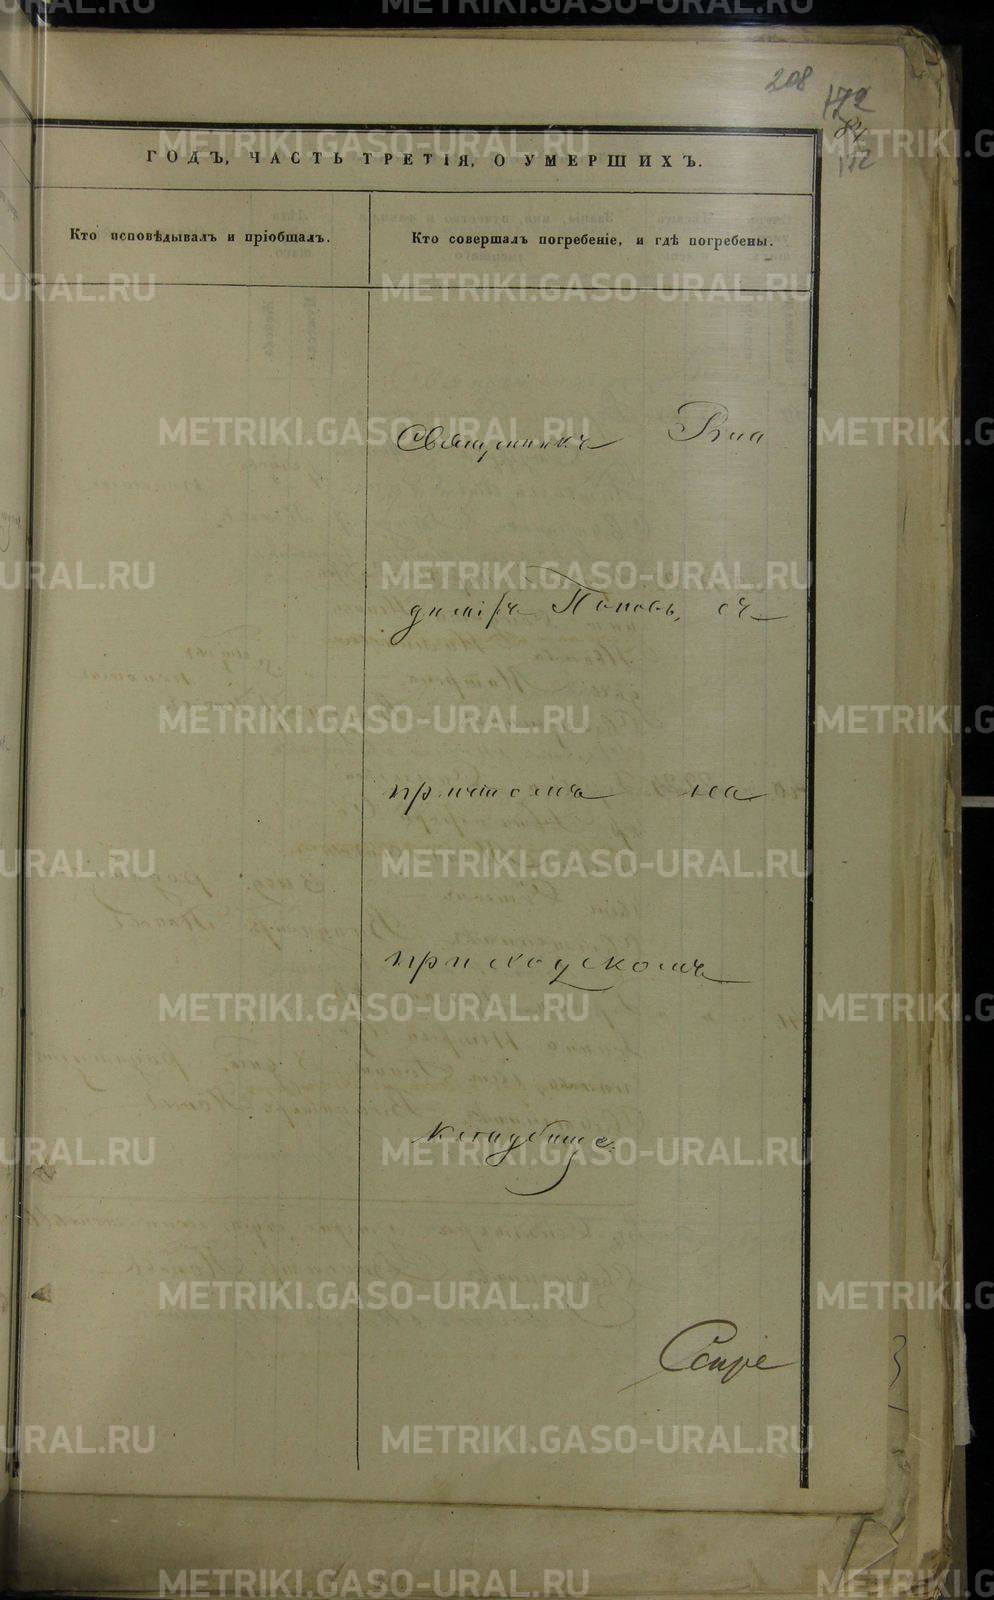 208
172
84
172
ГОДЪ, ЧАСТЬ ТРЕТІЯ, О УМЕРШИХЪ.
Кто исповѣдывалъ и пріобщалъ.
Кто совершалъ погребеніе, и гдѣ погребены.
Священникъ Вла
димiръ Поповъ, съ
причтомъ на
приходскомъ
кладбище
METRIKI.GASO-URAL.RU